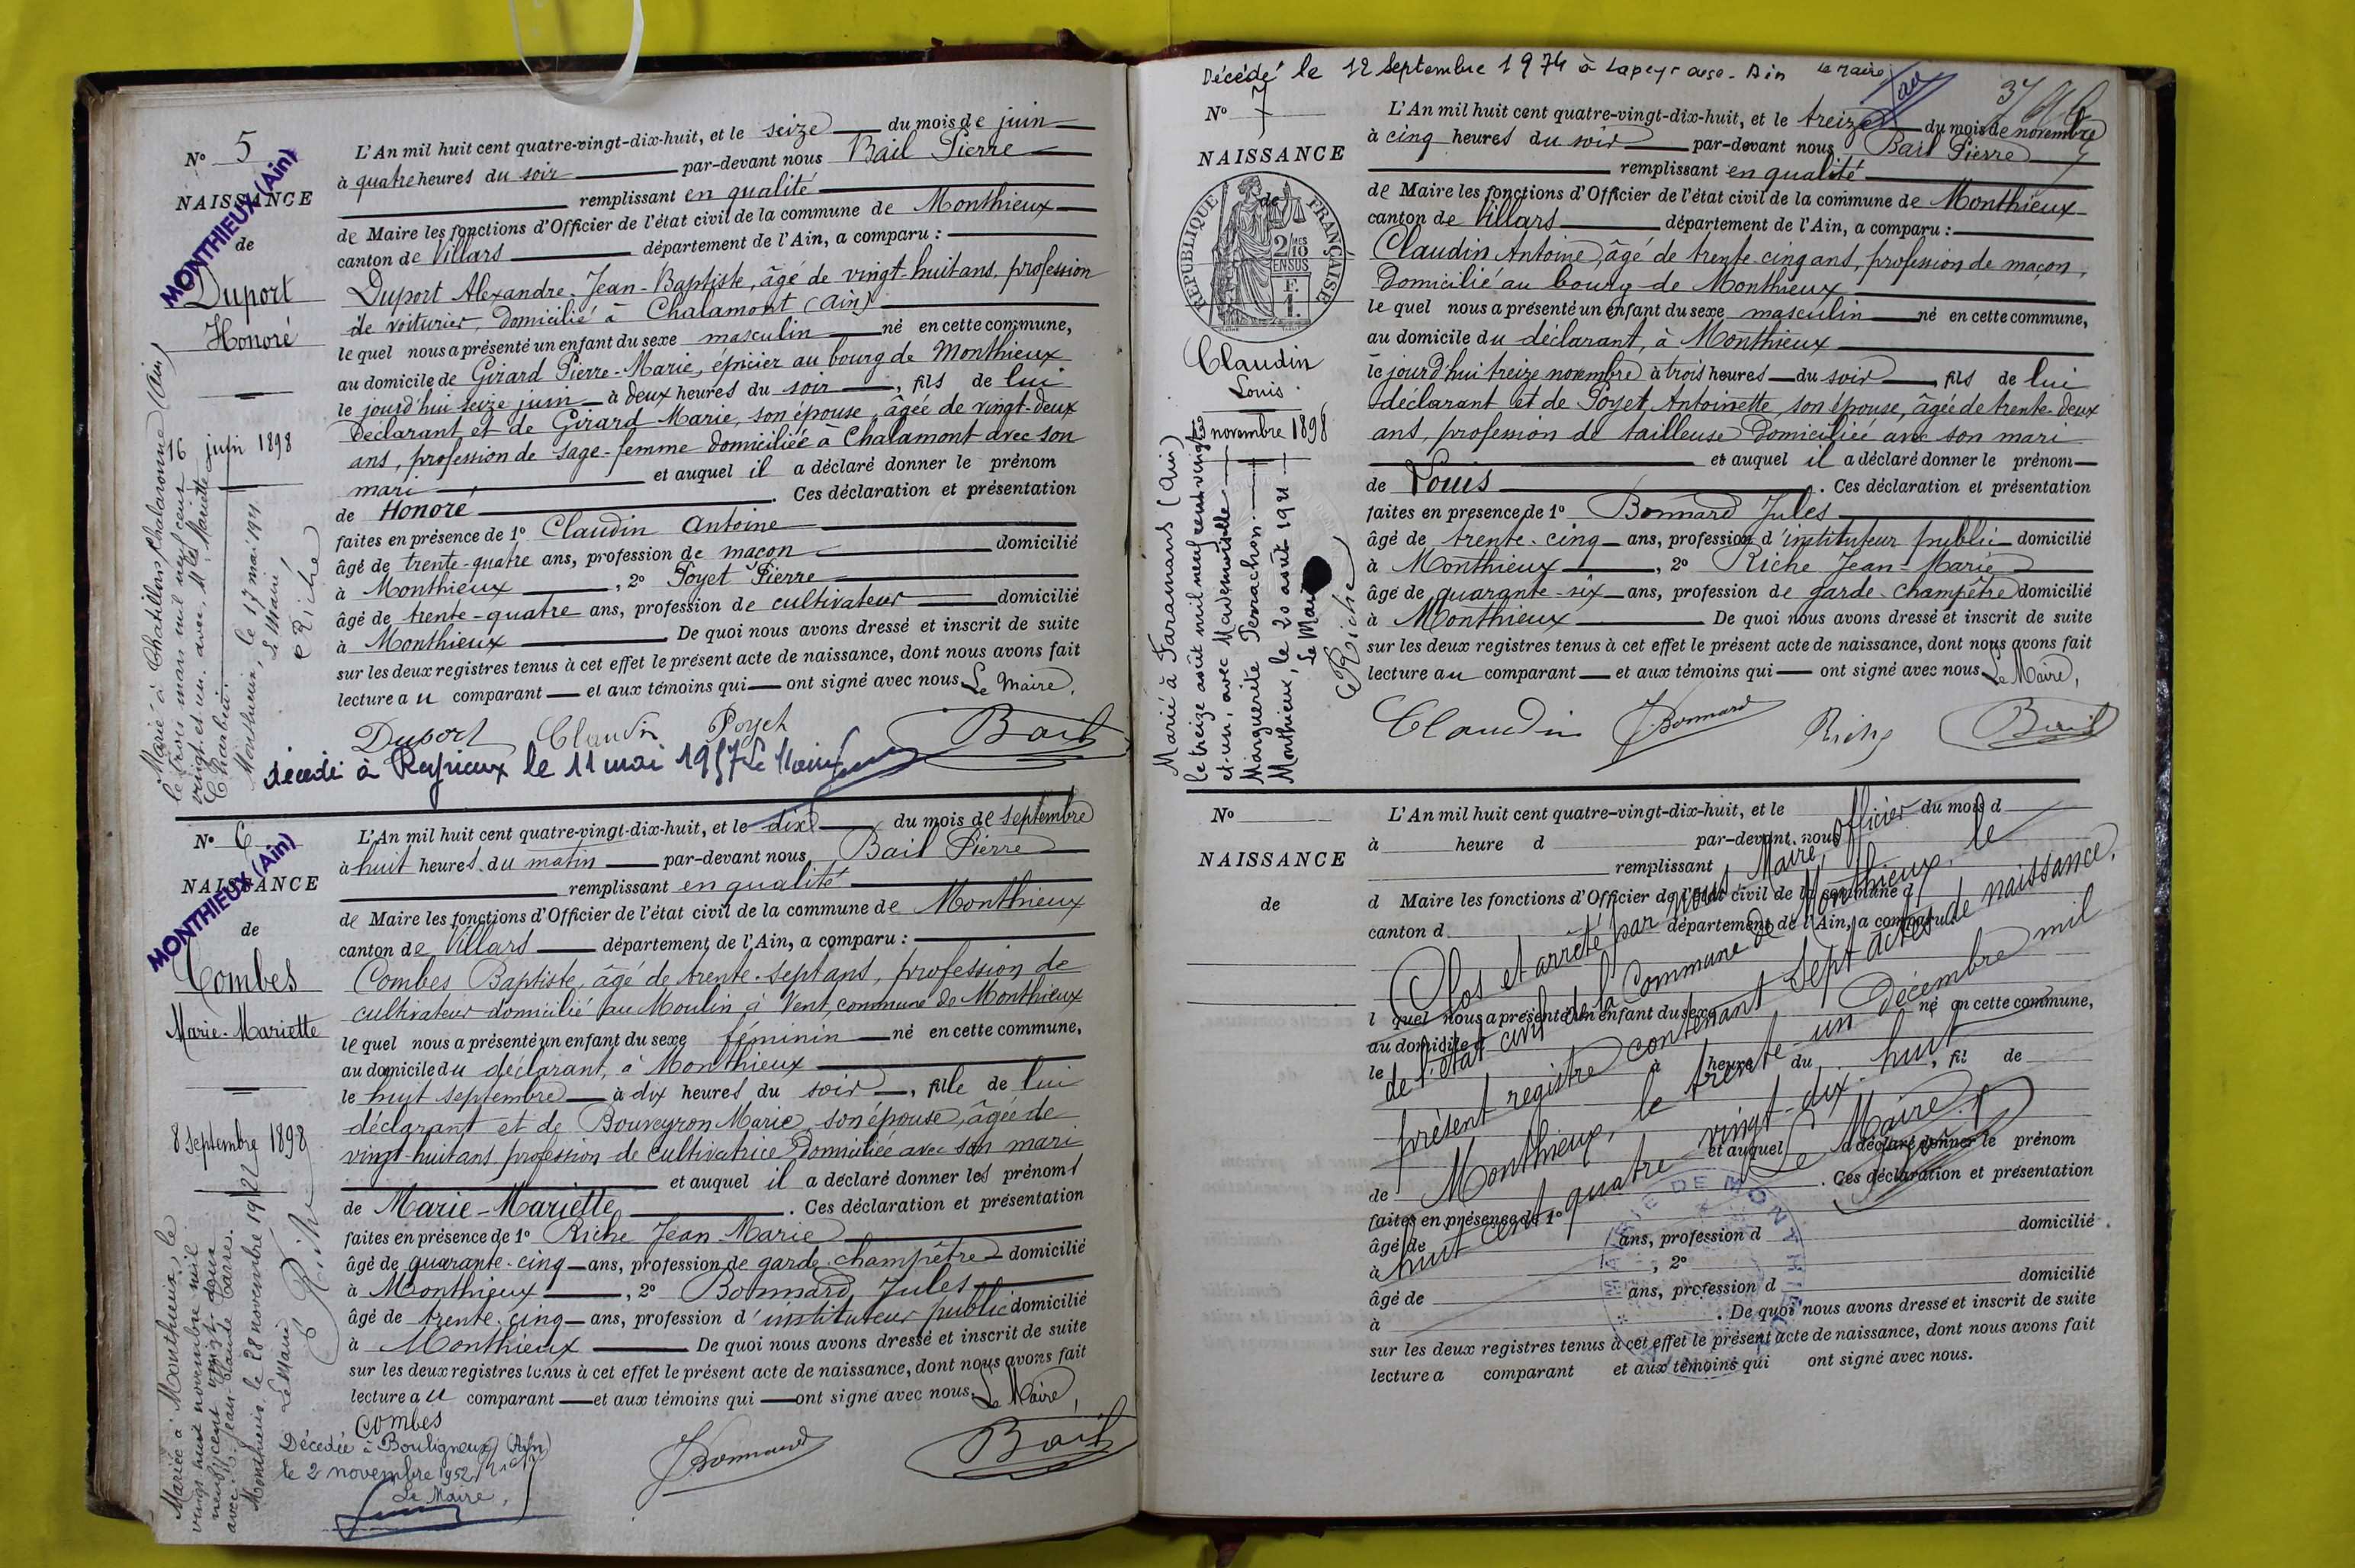 N° 5
NAISSANCE
de
MONTHIEUX (Ain)
Duport
Honoré
16 juin 1898
Marié à Chatillon s/ Chalaronne (Ain)
le trois mars mil neuf cent
vingt et un avec Mlle Mariette
Charbin.
Monthieux, le 17 mai 1921
Le Maire
Riche
L'An mil huit cent quatre-vingt-dix-huit, et le seize du mois de juin
à quatre heures du soir par-devant nous Bail Pierre
remplissant en qualité
de Maire les fonctions d'Officier de l'état civil de la commune de Monthieux
canton de Villars département de l'Ain, a comparu :
Duport Alexandre-Jean-Baptiste, âgé de vingt-huit ans, profession
de voiturier, domicilié à Chalamont (Ain)
le quel nous a présenté un enfant du sexe masculin né en cette commune,
au domicile de Girard Pierre-Marie, épicier au bourg de Monthieux
le jourd'hui seize juin à deux heures du soir, fils de lui
déclarant et de Girard Marie, son épouse, âgée de vingt-deux
ans, profession de sage-femme domiciliée à Chalamont avec son
mari et auquel il a déclaré donner le prénom
de Honoré. Ces déclaration et présentation
faites en présence de 1° Claudin Antoine
âgé de trente-quatre ans, profession de maçon domicilié
à Monthieux, 2° Poyet Pierre
âgé de trente-quatre ans, profession de cultivateur domicilié
à Monthieux De quoi nous avons dressé et inscrit de suite
sur les deux registres tenus à cet effet le présent acte de naissance, dont nous avons fait
lecture au comparant et aux témoins qui ont signé avec nous Le Maire,
Duport Claudin Poyet Bail
décédé à Reyrieux le 11 mai 1957 Le Maire
N° 6
NAISSANCE
de
MONTHIEUX (Ain)
Combes
Marie-Mariette
8 septembre 1898
Mariée à Monthieux, le
vingt huit novembre mil
neuf cent vingt-deux
avec Jean-Claude Carré.
Monthieux, le 28 novembre 1922
Le Maire
Riche
L'An mil huit cent quatre-vingt-dix-huit, et le dix du mois de septembre
à huit heures du matin par-devant nous Bail Pierre
remplissant en qualité
de Maire les fonctions d'Officier de l'état civil de la commune de Monthieux
canton de Villars département de l'Ain, a comparu :
Combes Baptiste, âgé de trente-sept ans, profession de
cultivateur domicilié au Moulin à Vent, commune de Monthieux
le quel nous a présenté un enfant du sexe féminin né en cette commune,
au domicile du déclarant, à Monthieux
le huit septembre à dix heures du soir, fille de lui
déclarant et de Bouveyron Marie, son épouse, âgée de
vingt-huit ans, profession de cultivatrice domiciliée avec son mari
et auquel il a déclaré donner les prénoms
de Marie-Mariette. Ces déclaration et présentation
faites en présence de 1° Riche Jean-Marie
âgé de quarante-cinq ans, profession de garde champêtre domicilié
à Monthieux, 2° Bonnard Jules
âgé de trente-cinq ans, profession d'instituteur public domicilié
à Monthieux De quoi nous avons dressé et inscrit de suite
sur les deux registres tenus à cet effet le présent acte de naissance, dont nous avons fait
lecture au comparant et aux témoins qui ont signé avec nous. Le Maire,
Combes JBonnard Bail
Décédée à Bouligneux (Ain)
le 2 novembre 1952
Le Maire,
Décédé le 12 Septembre 1974 à Lapeyrouse-Ain Le Maire
N° 7
NAISSANCE
de
RÉPUBLIQUE FRANÇAISE
2/10
EN SUS
F.
1.
Claudin
Louis
13 novembre 1898
Marié à Faramans (Ain)
le treize août mil neuf cent vingt
et-un, avec Mademoiselle
Marguerite Perrachon.
Monthieux, le 20 août 1921
Le Maire
Riche
L'An mil huit cent quatre-vingt-dix-huit, et le treize du mois de novembre
à cinq heures du soir par-devant nous Bail Pierre
remplissant en qualité
de Maire les fonctions d'Officier de l'état civil de la commune de Monthieux
canton de Villars département de l'Ain, a comparu :
Claudin Antoine, âgé de trente-cinq ans, profession de maçon,
domicilié au bourg de Monthieux
le quel nous a présenté un enfant du sexe masculin né en cette commune,
au domicile du déclarant, à Monthieux
le jourd'hui treize novembre à trois heures du soir, fils de lui
déclarant et de Poyet Antoinette, son épouse, âgée de trente-deux
ans, profession de tailleuse domiciliée avec son mari
et auquel il a déclaré donner le prénom
de Louis. Ces déclaration et présentation
faites en présence de 1° Bonnard Jules
âgé de trente-cinq ans, profession d'instituteur public domicilié
à Monthieux, 2° Riche Jean-Marie
âgé de quarante-six ans, profession de garde-champêtre domicilié
à Monthieux De quoi nous avons dressé et inscrit de suite
sur les deux registres tenus à cet effet le présent acte de naissance, dont nous avons fait
lecture au comparant et aux témoins qui ont signé avec nous Le Maire,
Claudin JBonnard Riche Bail
N°
NAISSANCE
de
L'An mil huit cent quatre-vingt-dix-huit, et le du mois d
à heure d par-devant nous
remplissant
d Maire les fonctions d'Officier de l'état civil de la commune d
canton d département de l'Ain, a comparu :
l quel nous a présenté un enfant du sexe né en cette commune,
au domicile d
le à heure du , fil de
et auquel a déclaré donner le prénom
de . Ces déclaration et présentation
faites en présence de 1°
âgé de ans, profession d domicilié
à , 2°
âgé de ans, profession d domicilié
à . De quoi nous avons dressé et inscrit de suite
sur les deux registres tenus à cet effet le présent acte de naissance, dont nous avons fait
lecture a comparant et aux témoins qui ont signé avec nous.
Clos et arrêté par nous Maire, Officier
de l'état civil de la Commune de Monthieux, le
présent registre contenant sept actes de naissance.
Monthieux, le trente-un décembre mil
huit cent quatre vingt-dix-huit
Le Maire
Bail
MAIRIE DE MONTHIEUX